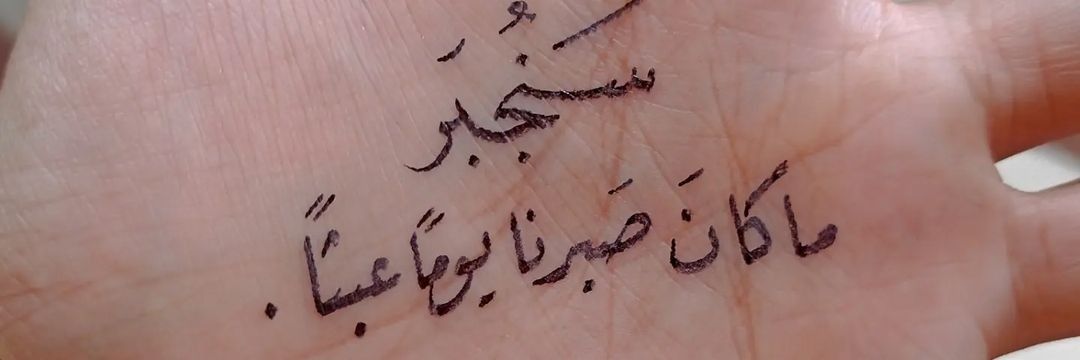 سَنُجبَر
ما كانَ صَبرنا يومًا عبثًا .